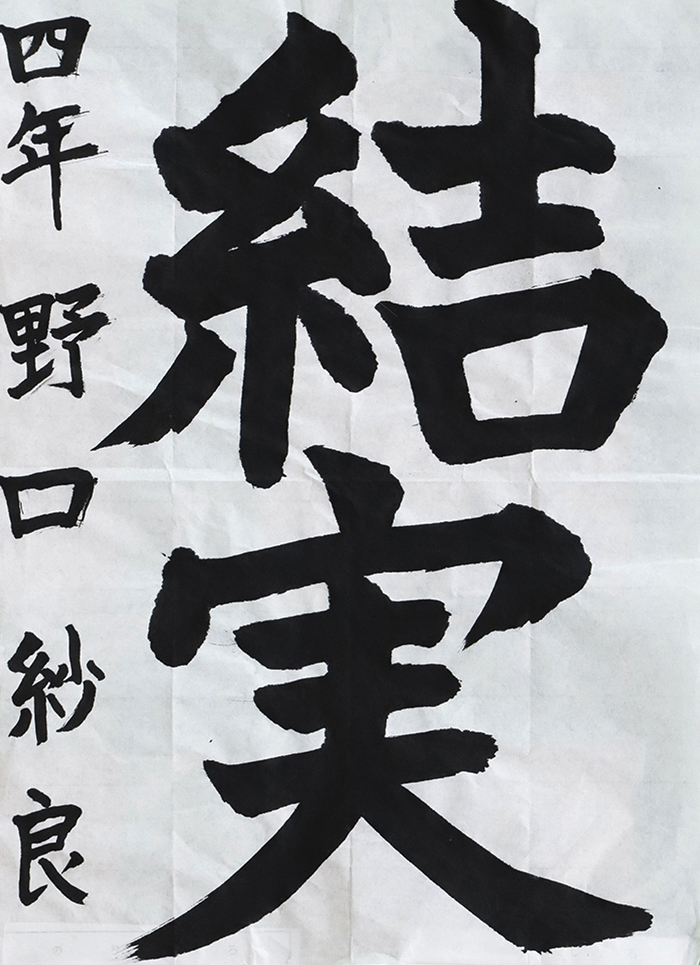 結実
四年 野口 紗良